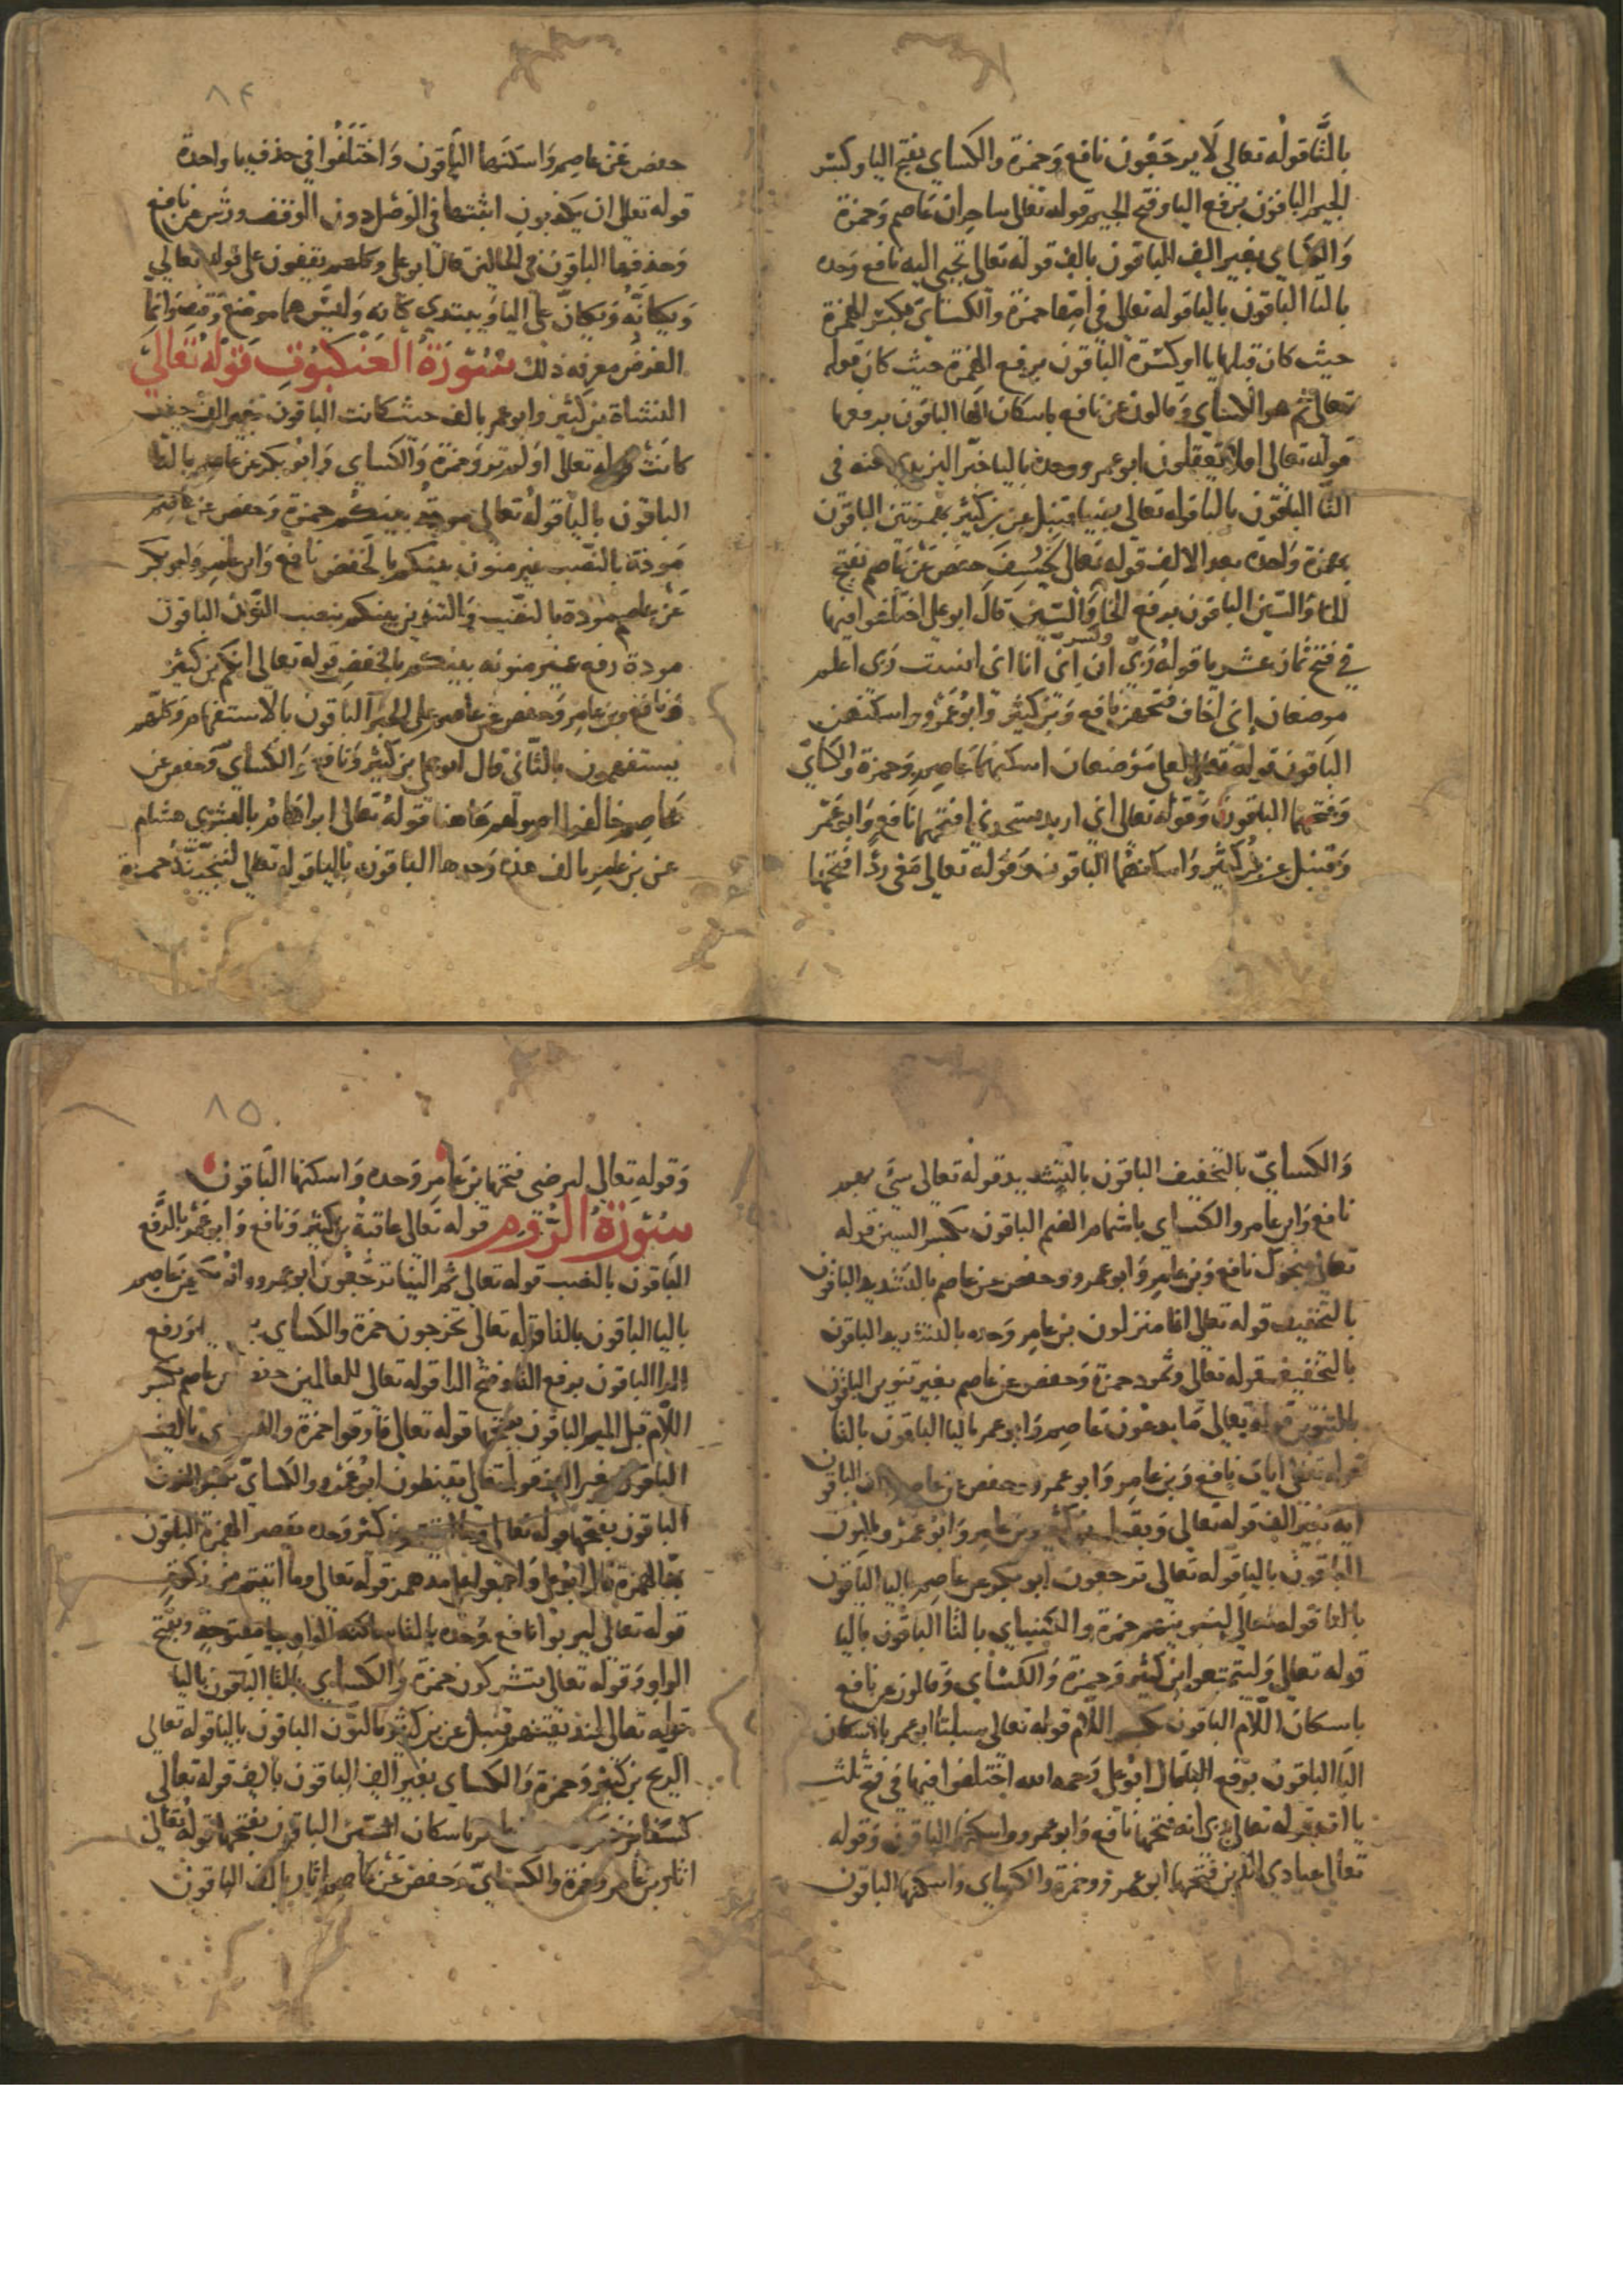 بالتا قوله تعالى لا يرجعون نافع وحمزة والكساي بفتح اليا وكسر
الجيم الباقون برفع اليا وفتح الجيم قوله تعالى ساحران عاصم وحمزة
والكساي بغير الف الباقون بالف قوله تعالى تجبى اليه نافع وحده
بالتا الباقون باليا قوله تعالى في امها حمزة والكساي بكسر الهمزة
حيث كان قبلها يا او كسرة الباقون برفع الهمزة حيث كان قوله
تعالى ثم هو الكساي وقالون عن نافع باسكان الها الباقون برفعها
قوله تعالى افلا تعقلون ابو عمرو وحده باليا خير اليزيدي عنه في
التا الباقون بالتا قوله تعالى بضيا قنبل عن بن كثير بهمزتين الباقون
بهمزة واحدة بعد الالف قوله تعالى لخسف حفص عن عاصم بفتح
الخا والسين الباقون برفع الخا وكسر السين قال ابو علي اختلفوا فيها
في فتح ثمان عشر يا قوله ربي ان اني انا اني انست ربي اعلم
موضعان اني اخاف فتحهن نافع وبن كثير وابو عمرو واسكنهن
الباقون قوله تعالى لعلي موضعان اسكنهما عاصم وحمزة والكساي
وفتحهما الباقون وقوله تعالى اني اريد ستجدني افتحهما نافع وابو عمر
وقنبل عن بن كثير واسكنهما الباقون وقوله تعالى معي ردا افتحها
٨٤
حفص عن عاصم واسكنها الباقون واختلفوا في حذف يا واحدة
قوله تعالى ان يكذبون اثبتها في الوصل دون الوقف ورش عن نافع
وحذفها الباقون في الحالين قال ابو علي وكلهم يقفون على قوله تعالى
ويكانه ويكان على اليا ويبتدي كانه وليس هما موضع وقف وانما
الغرض معرفه ذلك سورة العنكبوت قوله تعالى
النشاة بن كثير وابو عمر بالف حيث كانت الباقون بغير الف حيث
كانت قوله تعالى اولم تروا حمزة والكساي وابو بكر عن عاصم بالتا
الباقون باليا قوله تعالى مودة بينكم حمزة وحفص عن عاصم
مودة بالنصب غير منون بينكم بالخفض نافع وابن عامر وابو بكر
عن عاصم مودة بالنصب والتنوين بينكم بنصب النون الباقون
مودة رفع غير منونه بينكم بالخفض قوله تعالى انكم بن كثير
ونافع وبن عامر وحفص عن عاصم على الخبر الباقون بالاستفهام وكلهم
يستفهمون بالثاني قال ابو علي بن كثير ونافع والكساي وحفص عن
عاصم خالفوا اصولهم هاهنا قوله تعالى ابراهام بالبشرى هشام
عن بن عامر بالف هذه وحدها الباقون باليا قوله تعالى لننجينه حمزة
والكساي بالتخفيف الباقون بالتشديد قوله تعالى سيء بهم
نافع وابن عامر والكساي باشمام الضم الباقون بكسر السين قوله
تعالى منجوك نافع وبن عامر وابو عمرو وحفص عن عاصم بالتشديد الباقون
بالتخفيف قوله تعالى انا منزلون بن عامر وحده بالتشديد الباقون
بالتخفيف قوله تعالى وثمود حمزة وحفص عن عاصم بغير تنوين الباقون
بالتنوين قوله تعالى ما يدعون عاصم وابو عمر باليا الباقون بالتا
قوله تعالى ايات نافع وبن عامر وابو عمرو وحفص عن عاصم الباقون
ايه بغير الف قوله تعالى ويقول بن كثير وبن عامر وابو عمرو بالنون
الباقون باليا قوله تعالى ترجعون ابو بكر عن عاصم باليا الباقون
بالتا قوله تعالى لنبوينهم حمزة والكساي بالثا الباقون باليا
قوله تعالى وليتمتعوا بن كثير وحمزة والكساي وقالون عن نافع
باسكان اللام الباقون بكسر اللام قوله تعالى سبلنا ابو عمر باسكان
البا الباقون برفع البا قال ابو علي رحمه الله اختلفوا فيها في فتح ثلث
يا ات قوله تعالى ربي انه فتحها نافع وابو عمرو واسكنها الباقون وقوله
تعالى عبادي الذين فتحها ابو عمرو وحمزة والكساي واسكنها الباقون
٨٥
وقوله تعالى ارضي فتحها بن عامر وحده واسكنها الباقون
سورة الروم قوله تعالى عاقبة بن كثير ونافع وابو عمر بالرفع
الباقون بالنصب قوله تعالى ثم الينا ترجعون ابو عمرو وابو بكر عن عاصم
باليا الباقون بالتا قوله تعالى تخرجون حمزة والكساي ورفع
الرا الباقون برفع التا وفتح الرا قوله تعالى للعالمين حفص عن عاصم بكسر
اللام قبل الميم الباقون بفتحها قوله تعالى فارقوا حمزة والكساي بالف
الباقون بغير الف قوله تعالى يقنطون ابو عمرو والكساي بكسر النون
الباقون بفتحها قوله تعالى وما اتيتم بن كثير وحده بقصر الهمزة الباقون
بمد الهمزة قال ابو علي واجمعوا على مد همز قوله تعالى وما اتيتم من زكوة
قوله تعالى ليربوا نافع وحده بالتا ساكنة الواو بيا مفتوحة وبفتح
الواو وقوله تعالى يشركون حمزة والكساي بالتا الباقون باليا
قوله تعالى لنذيقنهم قنبل عن بن كثير بالنون الباقون باليا قوله تعالى
الريح بن كثير وحمزة والكساي بغير الف الباقون بالف قوله تعالى
كسفا بن عامر باسكان السين الباقون بفتحها قوله تعالى
اثار بن عامر وحمزة والكساي وحفص عن عاصم اثار بالف الباقون